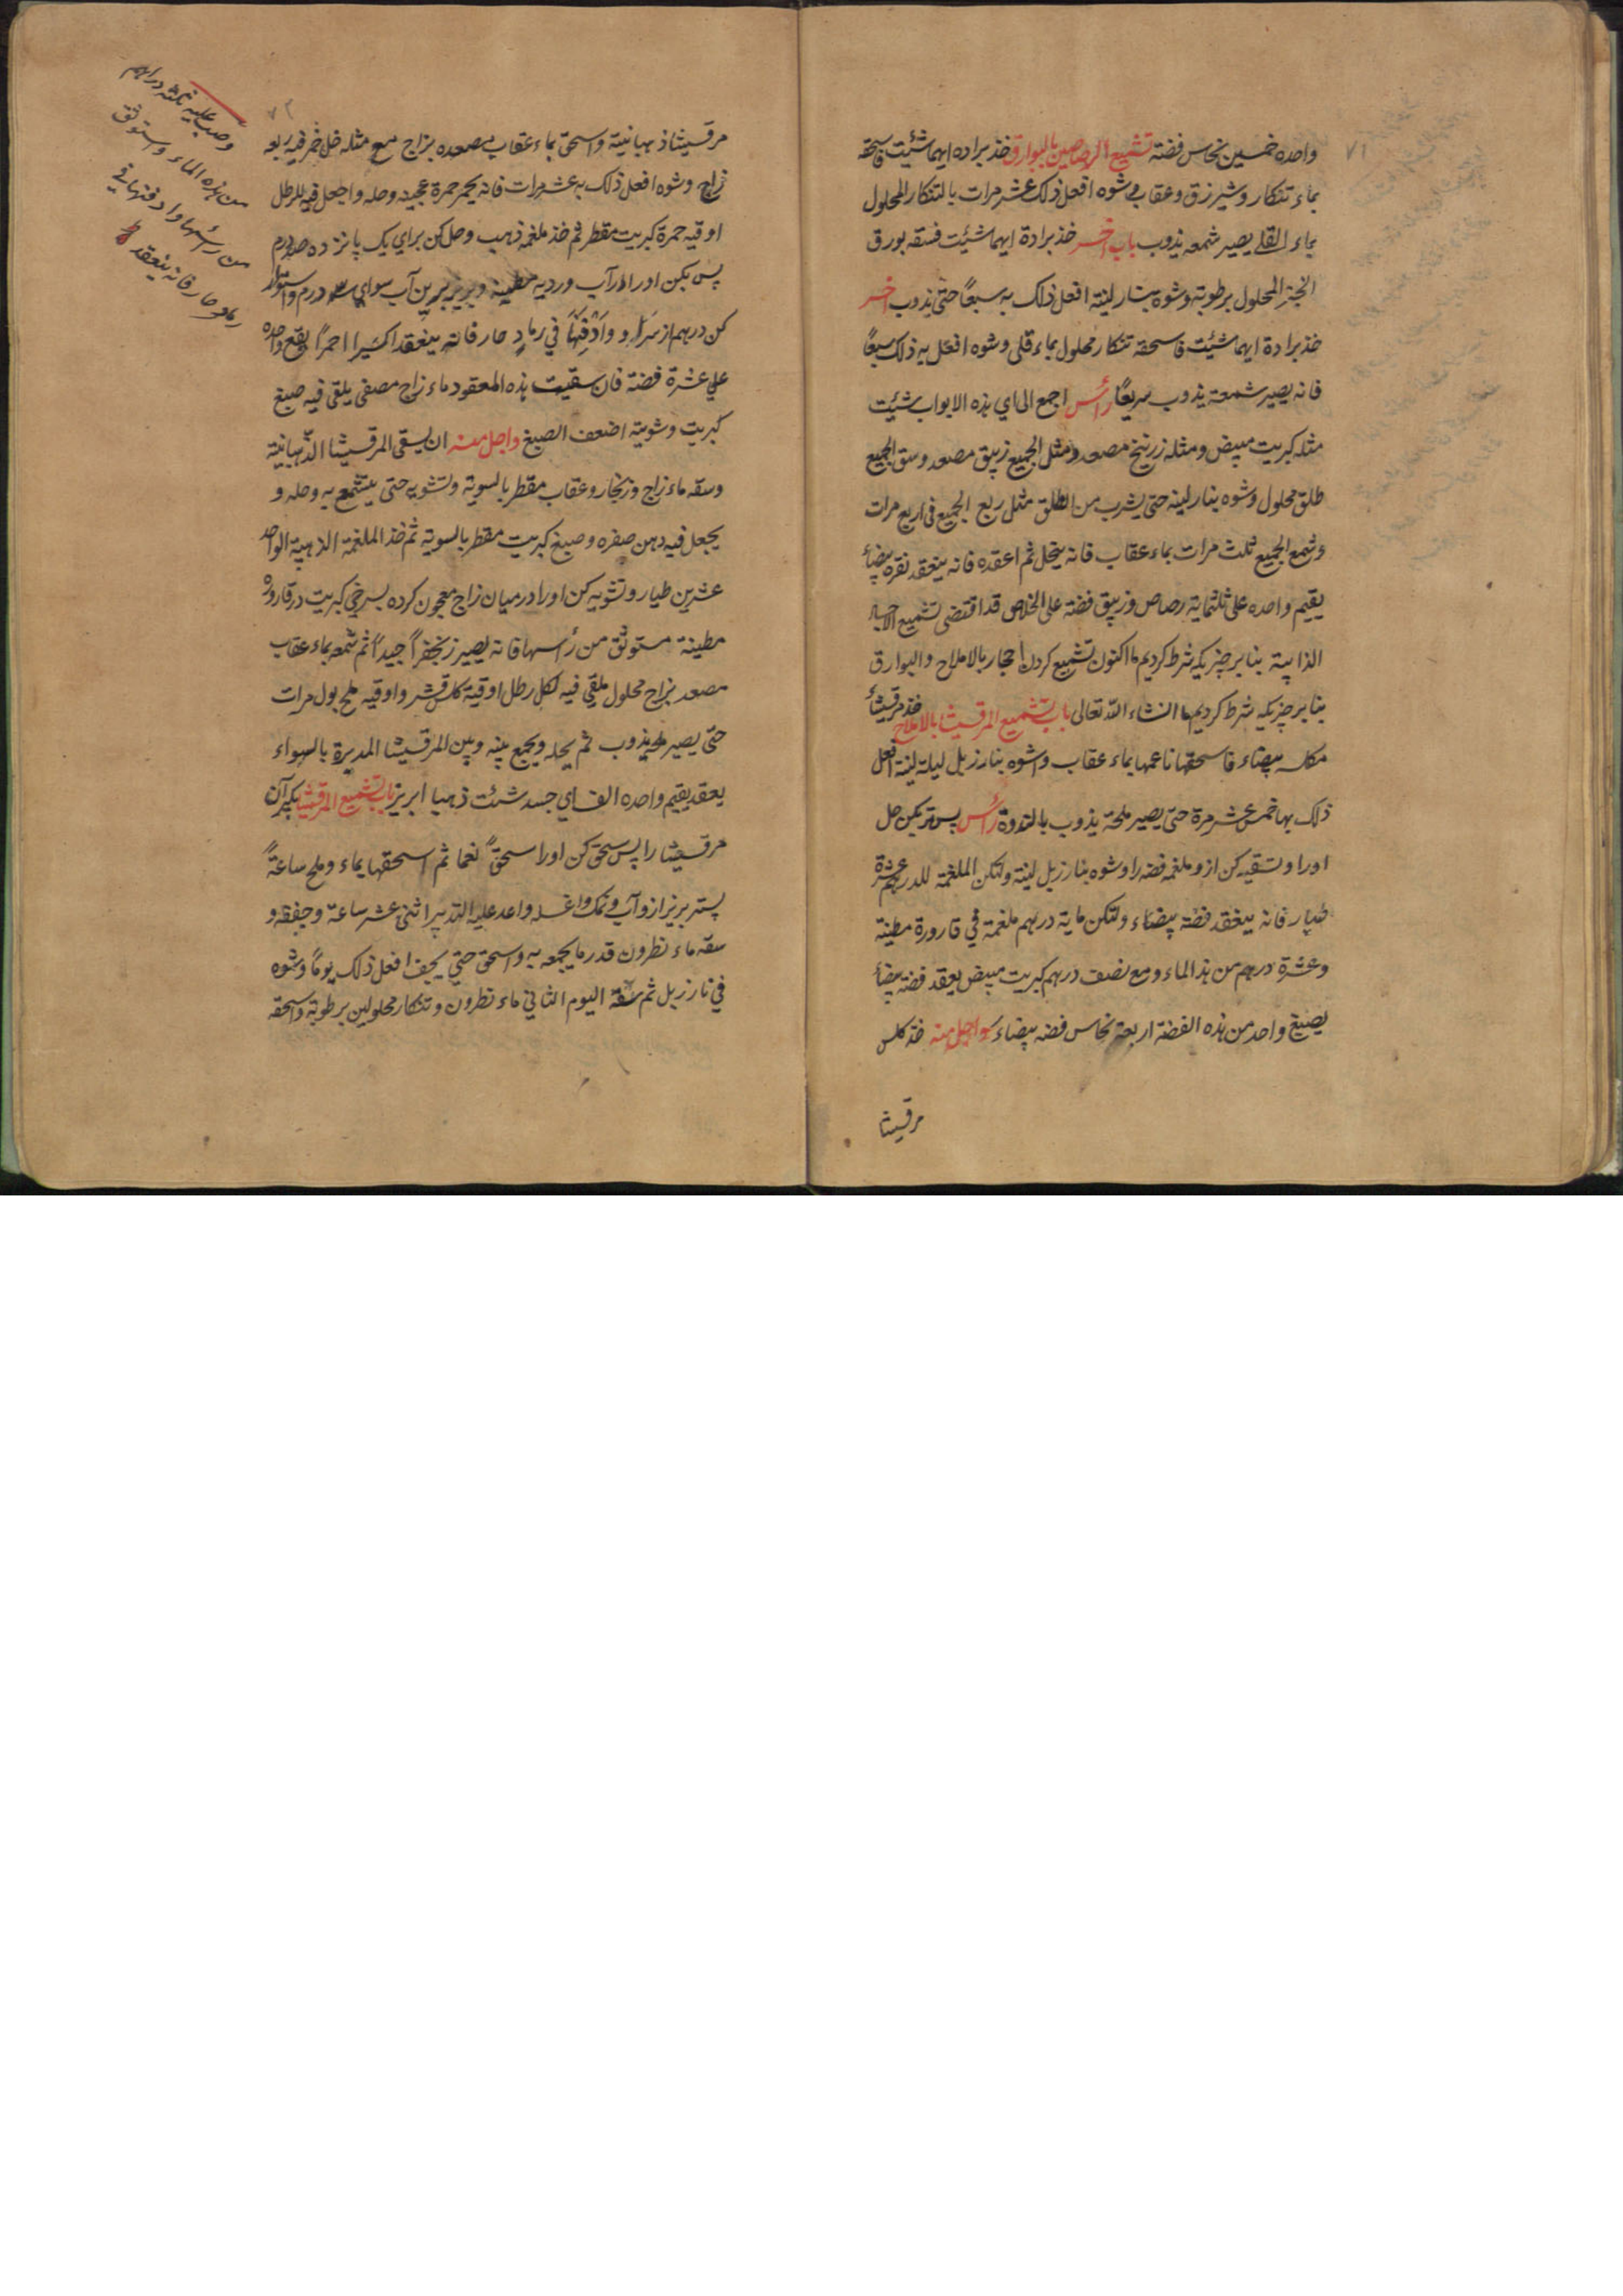 ۷۱
واحده خمسین نحاس فضة تشمیع الرصاصین بالبوارق خذ براده ایهما شئیت فاسحقه
بماء تنکار وشیرزق وعقاب وشوه افعل ذلک عشر مرات بالتنکار المحلول
بماء القلی یصیر شمعه یذوب باب اخر خذ برادة ایهما شئیت فسقه بورق
الخبز المحلول برطوبة وشوه بنار لینة افعل ذلک به سبعاً حتی یذوب اخر
خذ برادة ایهما شئیت فاسحقه تنکار محلول بماء قلی وشوه افعل به ذلک سبعاً
فانه یصیر شمعة یذوب سریعاً رأس اجمع الی ای هذه الابواب شئیت
مثله کبریت مبیض ومثله زرنیخ مصعد ومثل الجمیع زیبق مصعد وسق الجمیع
طلق محلول وشوه بنار لینه حتی یشرب من الطلق مثل ربع الجمیع فی اربع مرات
وشمع الجمیع ثلث مرات بماء عقاب فانه ینحل ثم اعقده فانه ینعقد نقره بیضاء
یقیم واحده علی ثلثمایة رصاص وزیبق فضة علی الخلاص قد اقتضی تشمیع الاجساد
الذایبة بنا بر چیزیکه شرط کردیم ما اکنون تشمیع کردن احجار بالاملاح والبوارق
بنا بر چیزیکه شرط کردیم ما انشاء الله تعالی باب تشمیع المرقیشا بالاملاح خذ مرقیشا
مکلسه بیضاء فاسحقها ناعمها بماء عقاب واشوه بنار زبل لیلة لینة افعل
ذلک بها خمس عشر مرة حتی یصیر ملحة یذوب بالندوة رأس پس تر بکن حل
اورا وتسقیه کن ازو ملغمه فضه را وشوه بنار زبل لینة ولتکن الملغمة للدرهم عشرة
طیار فانه ینعقد فضة بیضاء ولتکن مایة درهم ملغمة فی قارورة مطینة
وعشرة درهم من هذا الماء ومع نصف درهم کبریت مبیض یعقد فضة بیضاء
یصبغ واحد من هذه الفضة اربعة نحاس فضه بیضاء واجل منه خذ کلس
مرقیشا
۷۲
مرقسیشا ذهبانیة واسحق بماء عقاب مصعده بزاج مع مثله خل خمر فیه ربعه
زاج وشوه افعل ذلک به عشر مرات فانه یحمر حمرة عجیبه وحله واجعل فیه للرطل
اوقیه حمرة کبریت مقطر ثم خذ ملغمه ذهب وحل کن برای یک پانزده درم
پس بکن اورا در آب وردیه مطینه وبریز برین آب سوای درم واستوار
کن درهم از سرا و وَادْفِنْهَا فی رماد حار فانه ینعقد اکسیرا احمراً یقع واحده
علی عشرة فضة فان سقیت هذه المعقود ماء زاج مصفی یلقی فیه صبغ
کبریت وشویته اضعف الصبغ واجل منه ان یسقی المرقسیشا الذهبانیة
وسقه ماء زاج وزنجار وعقاب مقطر بالسویة وتشویه حتی یتشمع به وحله و
یجعل فیه دهن صفره وصبغ کبریت مقطر بالسویة ثم خذ الملغمة الذهبیة الواحد
عشرین طیار وتشویه کن اورا در میان زاج معجون کرده بسرخی کبریت در قاروره
مطینة مستوثق من رأسها فانه یصیر زنجفراً جیداً ثم شمعه بماء عقاب
مصعد بزاج محلول ملقی فیه لکل رطل اوقیة کلس قشر واوقیه ملح بول مرات
حتی یصیر ملحه یذوب ثم یحله ویجمع بینه وبین المرقسیشا المدبرة بالسواء
یعقد یقیم واحده الف ای جسد شئت ذهبا ابریز باب تشمیع المرقسیشا بکیر آن
مرقسیشا را پس سحق کن اورا سحقاً نعما ثم اسحقها بماء وملح ساعةً
پستر بریز ازو آب ونمک واغسله واعد علیه التدبیر اثنی عشر ساعة وجففه و
سقه ماء نطرون قدر ما یجمعه به واسحق حتی یجف افعل ذلک یوماً وشوه
فی نار زبل ثم سقه الیوم الثانی ماء نطرون وتنکار محلولین برطوبة واسحقه
وصب علیه ثلثه دراهم
من هذه الماء واستوثق
من رأسها وادفنها فی
رماد حار فانه ینعقد